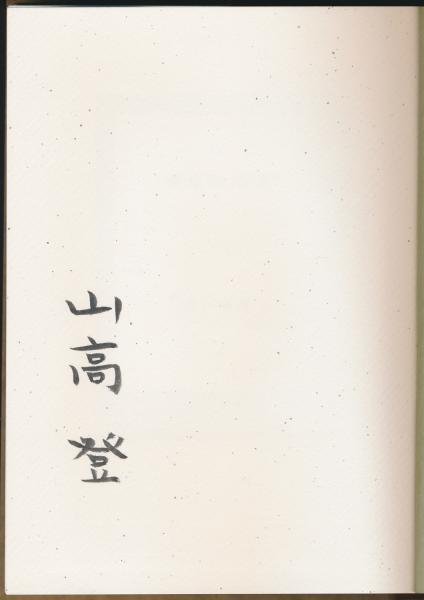 山高登